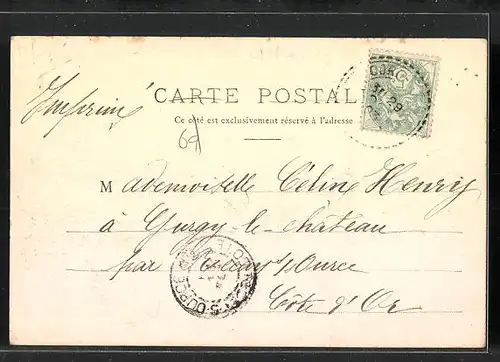 Imprimé
CARTE POSTALE
Ce côté est exclusivement réservé à l'adresse
69
Mademoiselle Céline Henry
à Gurgy-le-château
par Recey s/Ource
Côte d'Or